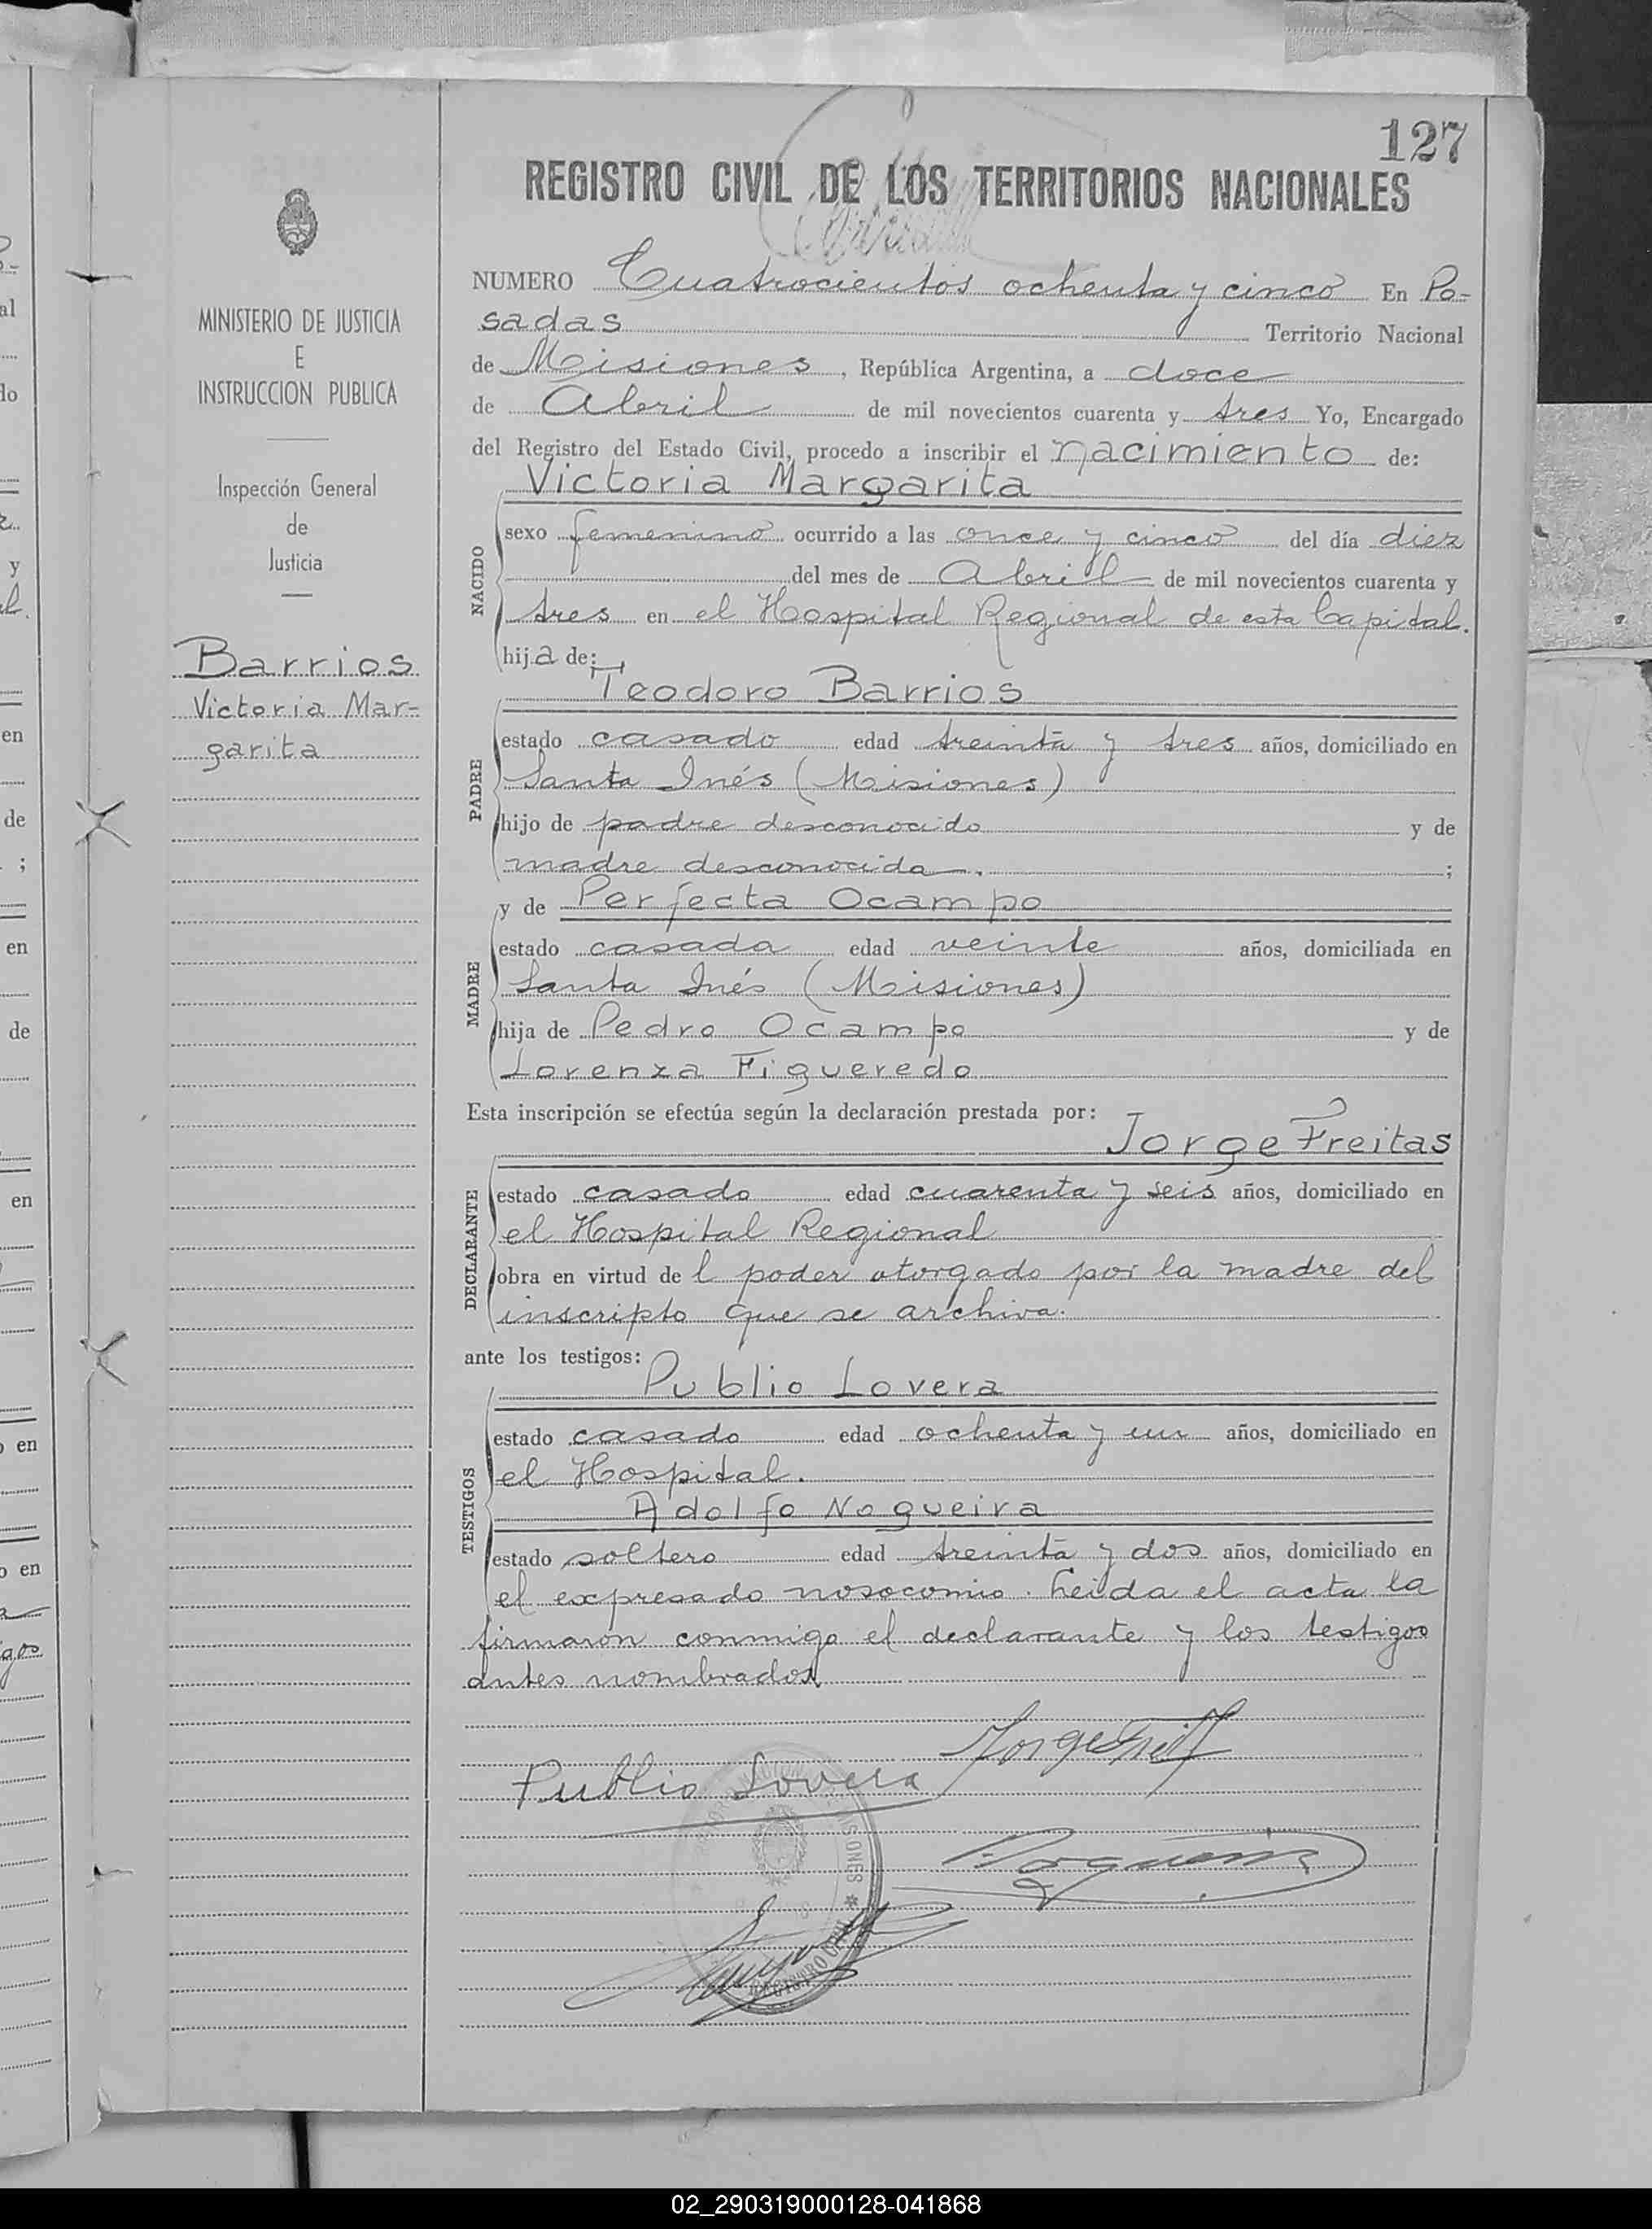 127
REGISTRO CIVIL DE LOS TERRITORIOS NACIONALES
MINISTERIO DE JUSTICIA
E
INSTRUCCION PUBLICA
Inspección General
de
Justicia
Barrios
Victoria Mar-
garita
NUMERO Cuatrocientos ochenta y cinco En Po-
sadas Territorio Nacional
de Misiones, República Argentina, a doce
de Abril de mil novecientos cuarenta y tres Yo, Encargado
del Registro del Estado Civil, procedo a inscribir el nacimiento de:
Victoria Margarita
NACIDO
sexo femenino ocurrido a las once y cinco del día diez
del mes de Abril de mil novecientos cuarenta y
tres en el Hospital Regional de esta Capital.
hija de:
Teodoro Barrios
PADRE
estado casado edad treinta y tres años, domiciliado en
Santa Inés (Misiones)
hijo de padre desconocido y de
madre desconocida. ;
y de Perfecta Ocampo
MADRE
estado casada edad veinte años, domiciliada en
Santa Inés (Misiones)
hija de Pedro Ocampo y de
Lorenza Figueredo
Esta inscripción se efectúa según la declaración prestada por:
Jorge Freitas
DECLARANTE
estado casado edad cuarenta y seis años, domiciliado en
el Hospital Regional
obra en virtud de l poder otorgado por la madre del
inscripto que se archiva.
ante los testigos:
Publio Lovera
TESTIGOS
estado casado edad ochenta y un años, domiciliado en
el Hospital.
Adolfo Nogueira
estado soltero edad treinta y dos años, domiciliado en
el expresado nosocomio. Leida el acta la
firmaron conmigo el declarante y los testigos
antes nombrados
Publio Lovera
REGISTRO CIVIL
02_290319000128-041868